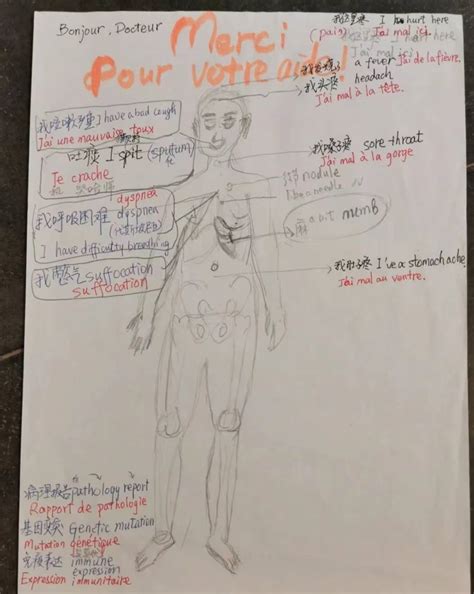 Bonjour, Docteur
Merci
Pour votre aide!
我这里疼 I hurt here
(pain) J'ai mal ici
I hurt here
J'ai mal ici
我发烧 a fever J'ai de la fièvre.
我头疼 headach
J'ai mal à la tête.
我咳嗽 I have a bad cough
J'ai une mauvaise toux
吐痰 I spit (sputum)
Je crache
我嗓子疼 sore throat
J'ai mal à la gorge
nodule
我呼吸困难 dyspnea
dyspnea
I have difficulty breathing
a bit numb
我憋气 suffocation
suffocation
我肚子疼 I've a stomachache
J'ai mal au ventre.
病理报告 pathology report
Rapport de pathologie
基因突变 Genetic mutation
Mutation génétique
免疫表达 immune
expression
Expression immunitaire